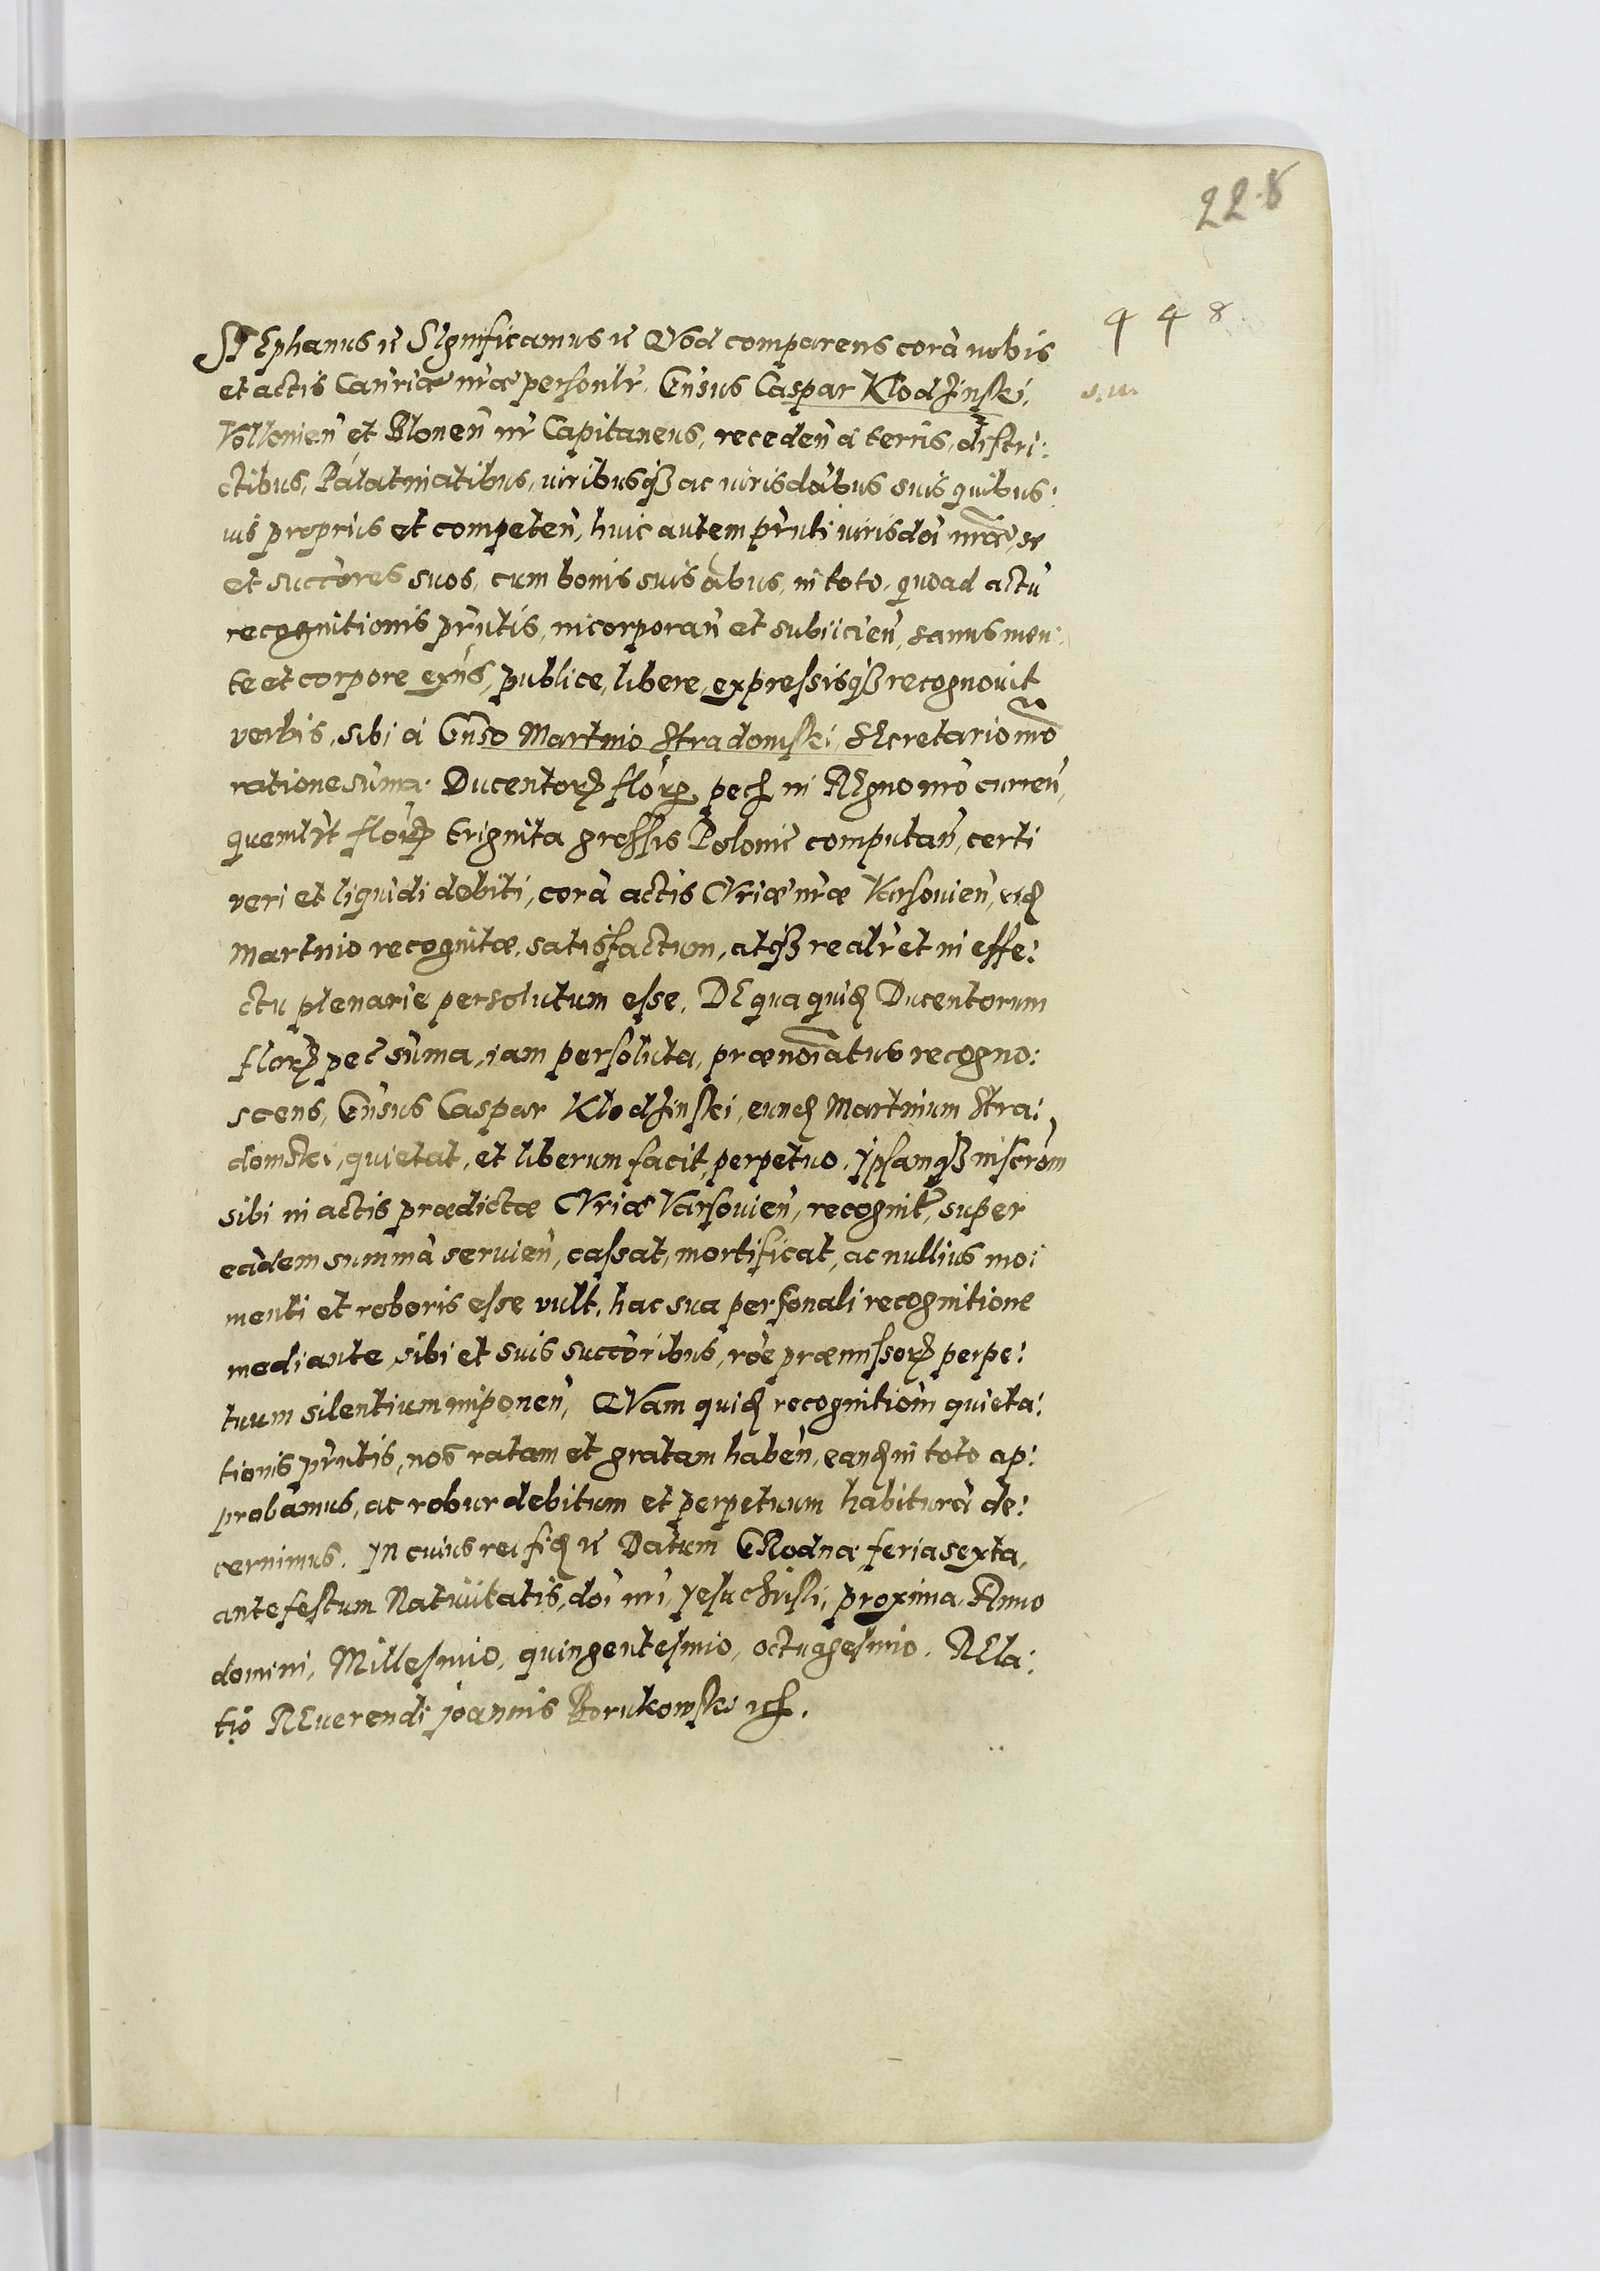 228
448
STEphanus ꝛc SIgnificamus ꝛc QVod comparens corā nobis
et actis Canr̄iæ nr̄æ personlr̄. Gn̄sus Caspar Klodzinski,
et Blonen̄ nr̄ Capitaneus, receden̄ a terris, distri:
ctibus, Palatinatibus, iuribusqȝ ac iurisdōbus suis quibus:
uis proprijs et competen̄, huic autem pr̄nti iurisdōi nr̄æ, se
et succōres suos, cum bonis suis ōibus, in toto, quoad actū
recognitionis pr̄ntis, incorporan̄ et subijcien̄, sanus men:
te et corpore exn̄s, publice, libere, expressisqȝ recognouit
verbis, sibi a Gn̄so Martino Stradomski, SEcretario nr̄o
ratione sum̄a Ducentorꝝ flōrꝝ pecꝭ in REgno nr̄o curren̄,
quemlꝫt flōrꝝ triginta grossis Polonic̄ computan̄, certi
veri et liquidi debiti, corā actis CVriæ nr̄æ Varsouien̄, eidꝫ
Martino recognitæ, satisfactum, atqȝ realr̄ et in effe:
ctu plenarie persolutum esse. DE qua quidꝫ Ducentorum
florꝝ pec̄ sum̄a, iam persoluta, prænoīatus recogno:
scens, Gn̄sus Caspar Klodzinski, eundꝫ Martinum Stra:
domski, quietat, et liberum facit, perpetuo. Ipsamqȝ inscrōm
sibi in actis prædictæ CVriæ Varsouien̄, recognit̄, super
eādem summā seruien̄, cassat, mortificat, ac nullius mo:
menti et roboris esse vult, hac sua personali recognitione
mediante, sibi et suis succōribus, rōe præmissorꝝ perpe:
tuum silentium imponen̄, QVam quidꝫ recognitiom̄ quieta:
tionis pr̄ntis, nos ratam et gratam haben̄, eandꝫ in toto ap:
probamus, ac robur debitum et perpetuum habiturā de:
cernimus. In cuius rei fidꝫ ꝛc Datum GRodnæ feria sexta,
ante festum Natiuitatis, dōi nr̄i, Jesu Christi, proxima. Anno
domini, Millesimo, quingentesimo, octuagesimo. REla:
tio REuerendi Joannis Borukowski ꝛcꝭ.